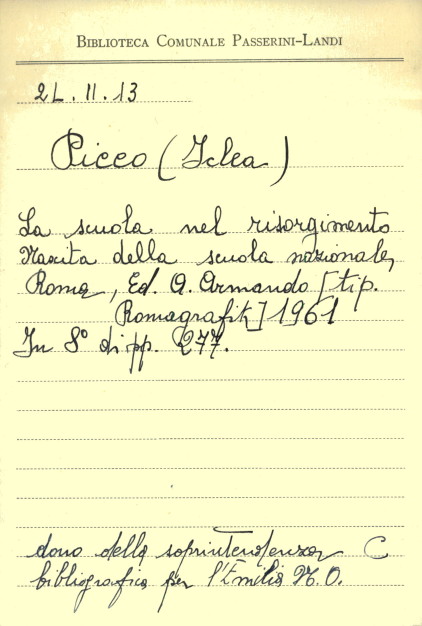 BIBLIOTECA COMUNALE PASSERINI-LANDI
2L. II. 13
Picco (Iclea)
La scuola nel risorgimento
Nascita della scuola nazionale,
Roma, Ed. A. Armando [tip.
Romagrafik] 1961
In 8° di pp. 277.
dono della soprintendenza C
bibliografica per l'Emilia N.O.